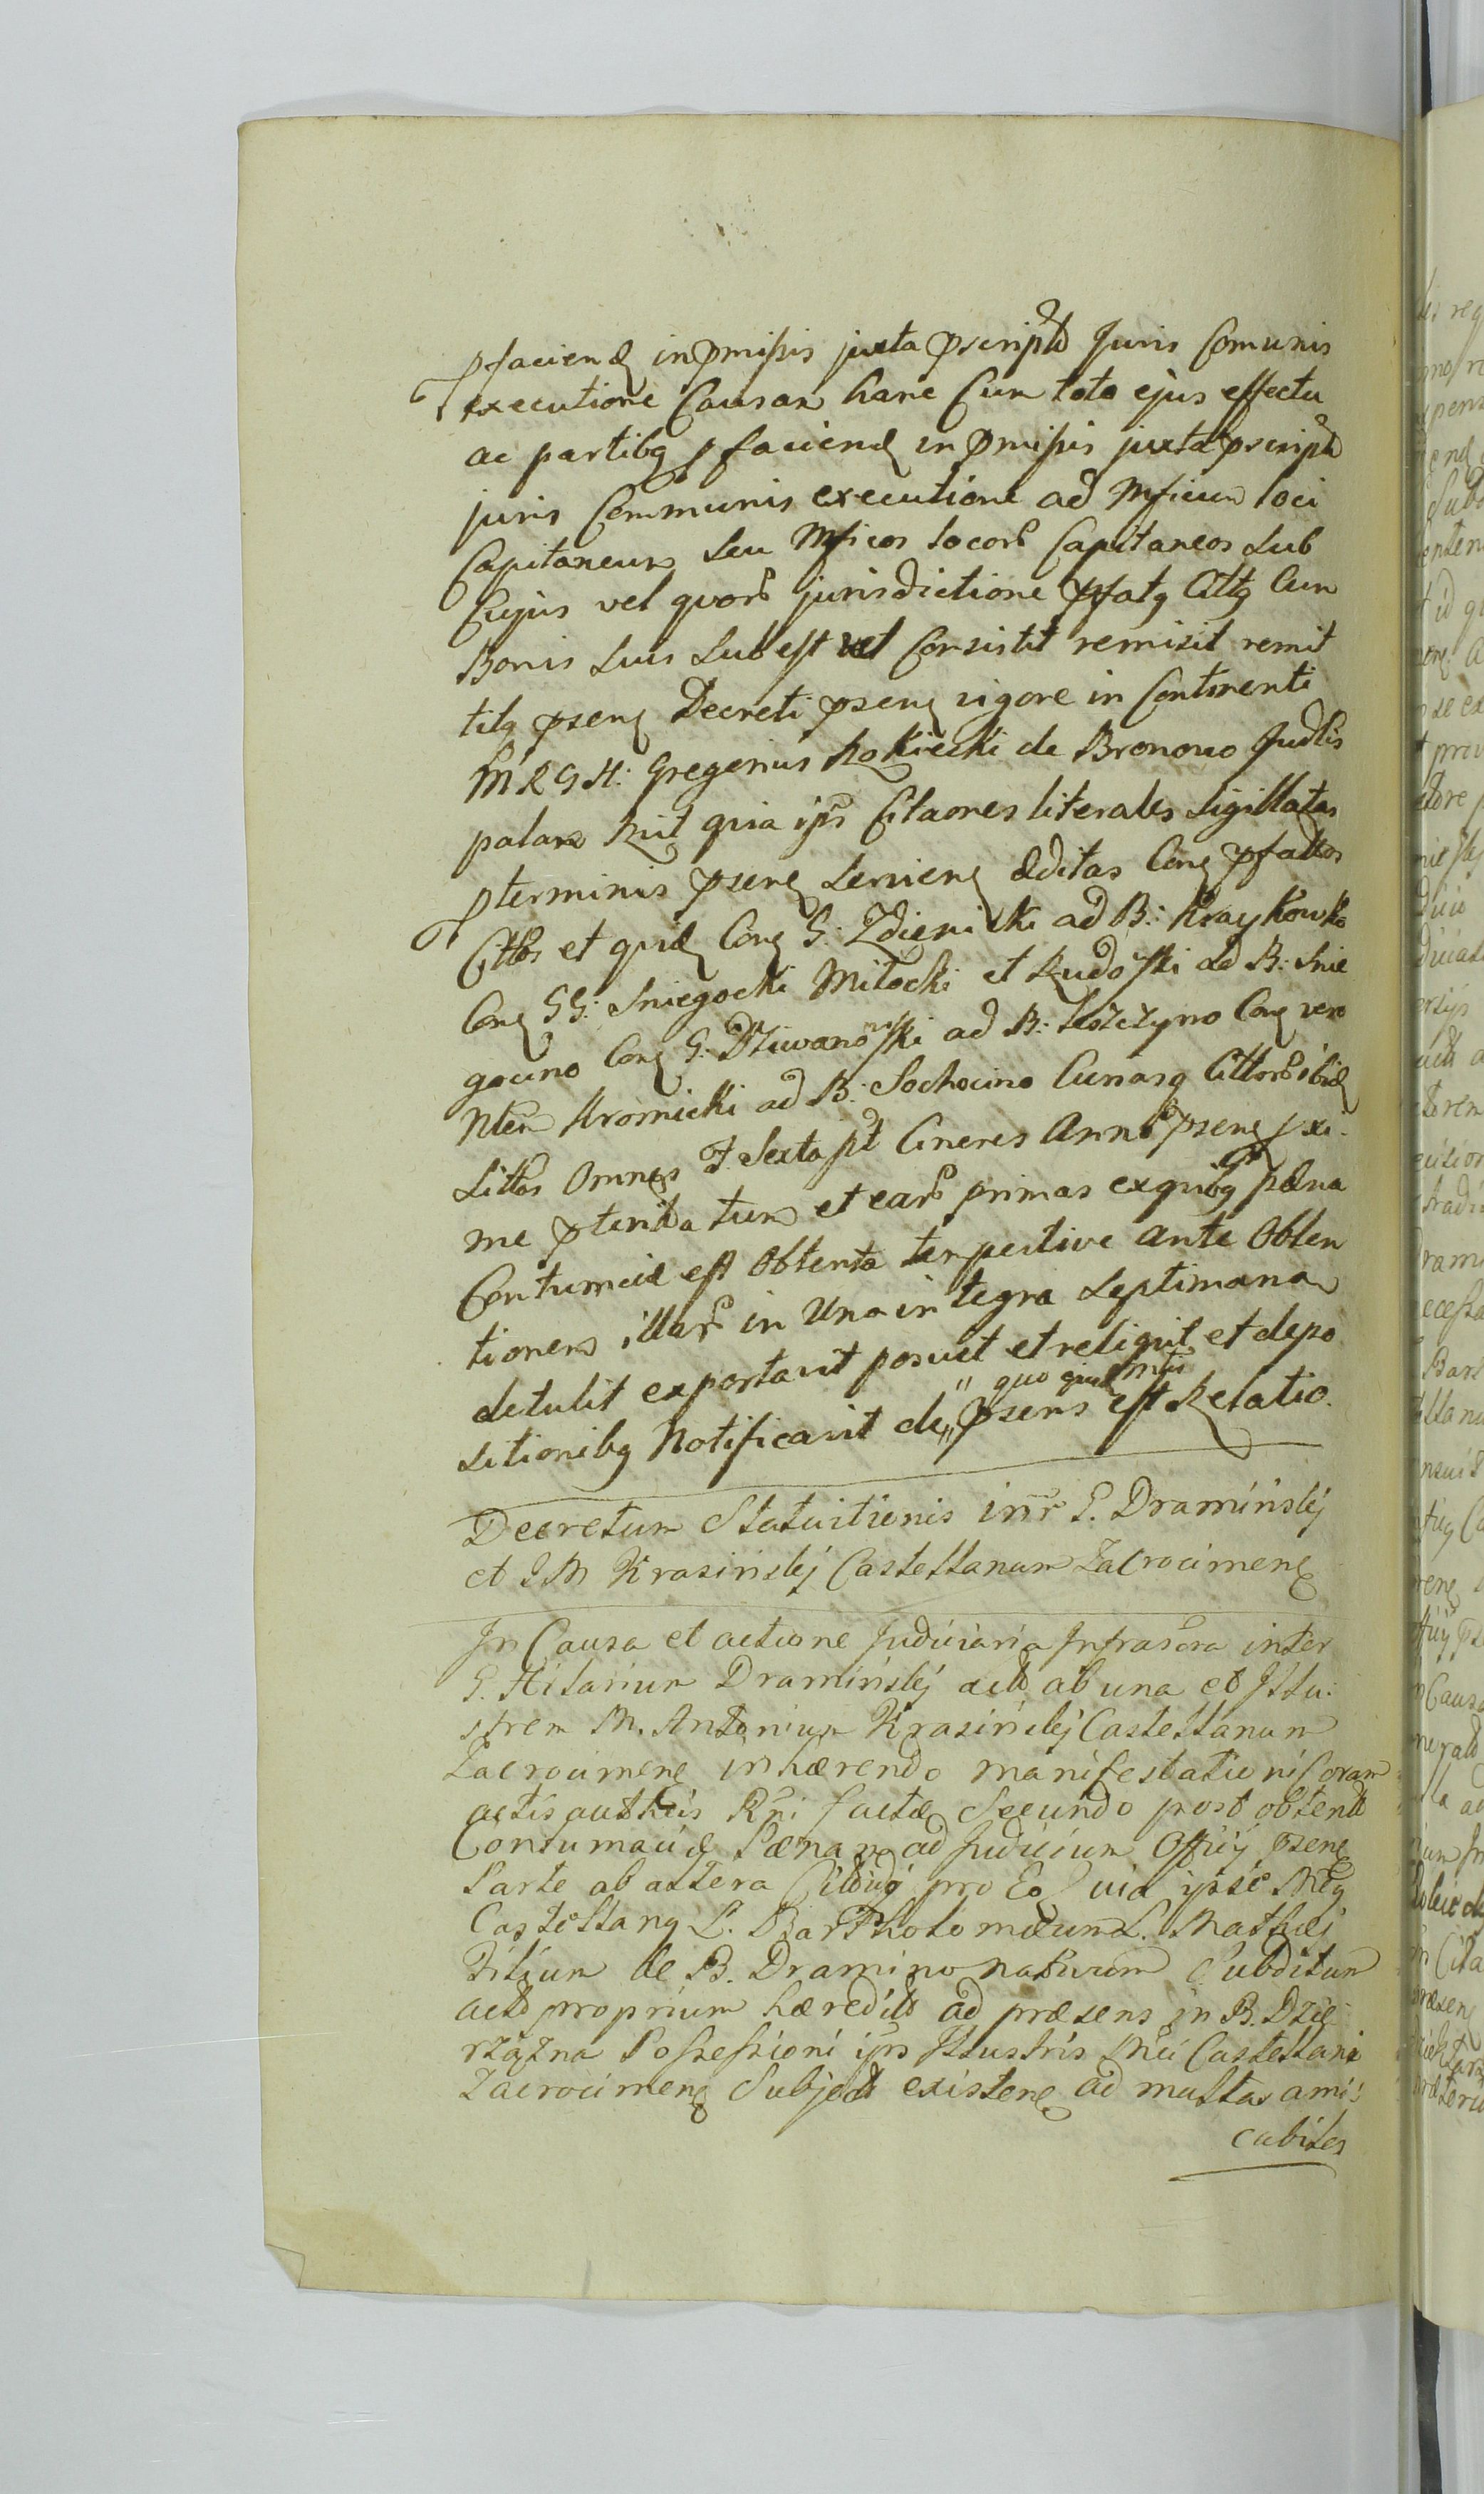 pfaciend in pmissis juxta pscriptô Juris Comunis
executione Causam hanc Cum toto ejus effectu
ac partibq pfaciend in pmissis juxta pscriptô
juris Communis executione ad Mficum loci
Capitaneum seu Mficos locorô Capitaneos sub
Cujus vel quorô jurisdictione pfatq Cittq Cum
Bonis suis subest vel Consistit remisit remit
titq psenq Decreti psenq vigore in Continenti
M R G H: Gregorius Rokicki de Bronowo Judlis
palam Rnit quia ips Citaones literales sigillatas
pterminis psenq servienq Edditas Conq pfattos
Cittos et quid Conq G: Zdienicki ad B: Kraykowko
Conq GG: Sniegocki Mitocki et Rudowski ad B: Snie
gocino Conq G: Dziwanowski ad B: Leszczyno Conq vero
Nlem Kromicki ad B: Sochocino Curiasq Cittorô ibid
sittas Omnes F. Sexta pt Cineres Anni psenq pxi-
me pteritâ tum et earô primas ex quibq pæna
Contumciæ est obtenta tempestive ante obten
tionem illarô in Una integra septimana
detulit exportavit posuit et reliquit et depo
sitionibq Notificavit de,, psens est Relatio.
,, quo quid mlis
Decretum Statuitionis intr G. Dramiński
et I M Krasiński Castellanum Zacrocimenq
In Causa et actione Judiciaria Infrascra inter
G. Hilarium Dramiński actô ab una et Illu:
strem M. Antonium Krasiński Castellanum
Zacrocimenq inhærendo manifestationi Coram
actis authcis Rni factæ Secundo post obtentô
Contumaciæ Pænam ad Judicium Officij psenq
Parte ab altera Citôug pro Eo Quia ipse Mcq
Castellanq L. Bartholomæum L. Mathæj
Filium de B. Dramino nativum Subditum
actô proprium hæreditô ad præsens in B. Dzie
rzązna Possessioni ips Illustris Mci Castellani
Zacrocimenq Subjectô existenq ad multas ami:
cabiles